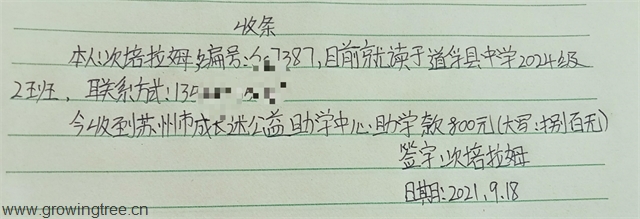 收条
本人:次培拉姆,编号: 7387,目前就读于道孚县中学2024级
2班,联系方式:135
今收到苏州市成长述公益助学中心助学款800元(大写:捌百元)
签字:次培拉姆
日期:2021.9.18
www.growingtree.cn